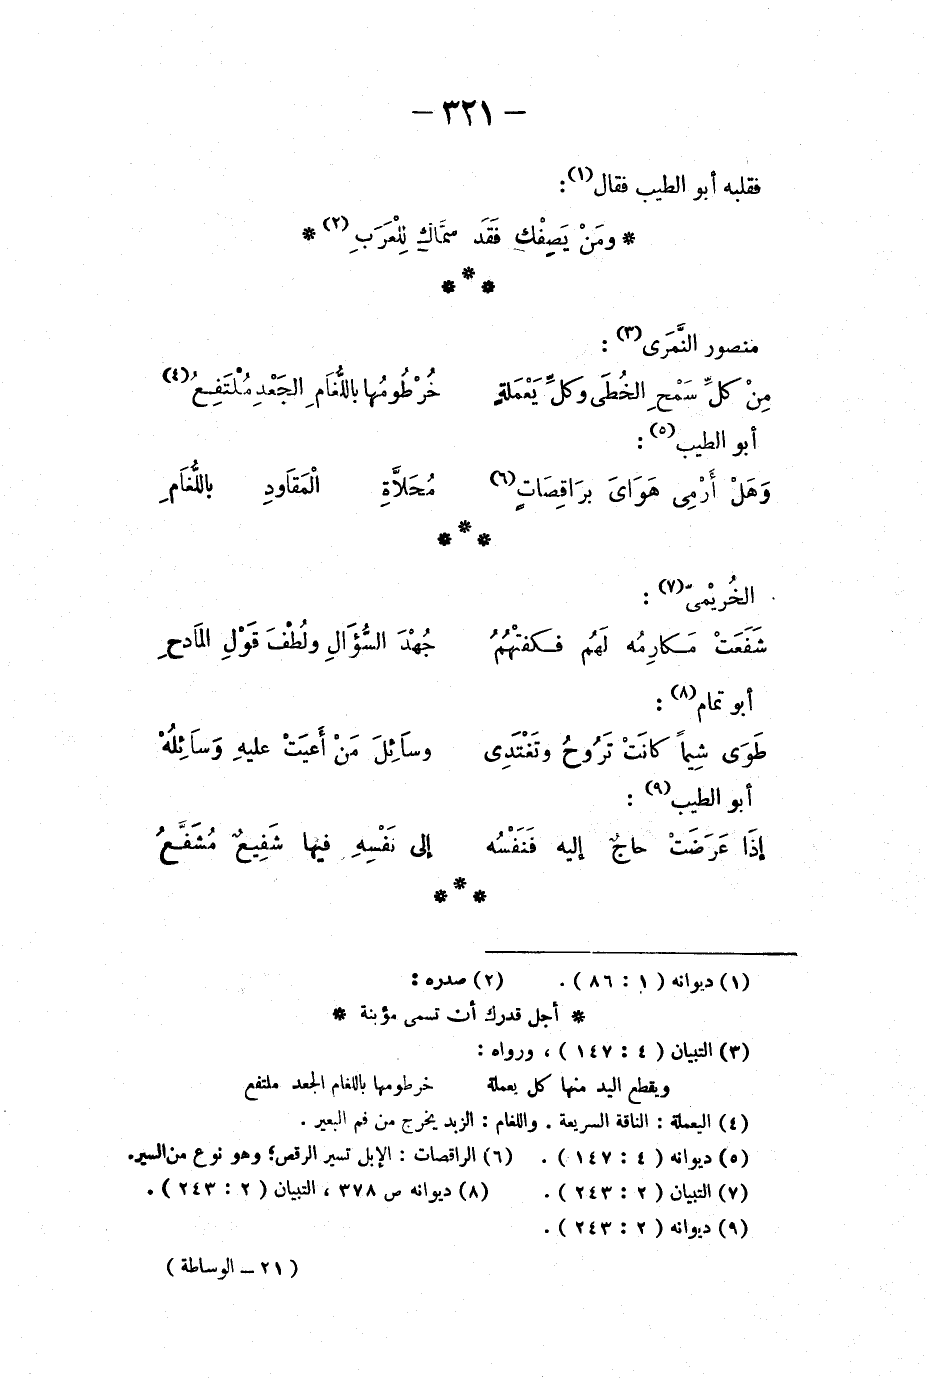 – ٣٢١ –
فقلبه أبو الطيب فقال(١) :
* ومَنْ يَصِفْكِ فَقَد سمَّاكِ لِلْعَرَبِ(٢) *
* * *
منصور النَّمَرى(٣) :
مِنْ كلِّ سَمْحِ الخُطَى وكلِّ يَعْمَلةٍ خُرْطُومُها باللُّغَامِ الجَعْدِ مُلْتَفِعُ(٤)
أبو الطيب(٥) :
وَهَلْ أَرْمِى هَوَاىَ برَاقِصَاتٍ(٦) مُحَلاَّةِ الْمَقَاودِ باللُّغَامِ
* * *
الخُريْمىّ(٧) :
شَفَعَتْ مَكارِمُه لَهُم فكفتْهُمُ جُهْدَ السُّؤَالِ ولُطْفَ قَوْلِ المَادحِ
أبو تمام(٨) :
طَوَى شِيَماً كانَتْ تَرُوحُ وتَغْتَدِى وسَائِلَ مَنْ أَعيَتْ عليهِ وَسَائِلُهْ
أبو الطيب(٩) :
إذَا عَرَضَتْ حاجٌ إليه فَنَفْسُه إلى نَفْسِهِ فيها شَفِيعٌ مُشَفَّعُ
* * *
(١) ديوانه ( ١ : ٨٦ ) . (٢) صدره :
* أجل قدرك أن تسمى مؤبنة *
(٣) التبيان ( ٤ : ١٤٧ ) ، ورواه :
ويقطع البد منها كل يعملة خرطومها باللغام الجعد ملتفع
(٤) اليعملة : الناقة السريعة . واللغام : الزبد يخرج من فم البعير .
(٥) ديوانه ( ٤ : ١٤٧ ) . (٦) الراقصات : الإبل تسير الرقص؛ وهو نوع من السير.
(٧) التبيان ( ٢ : ٢٤٣ ) . (٨) ديوانه ص ٣٧٨ ، التبيان ( ٢ : ٢٤٣ ) .
(٩) ديوانه ( ٢ : ٢٤٣ ) .
( ٢١ – الوساطة )